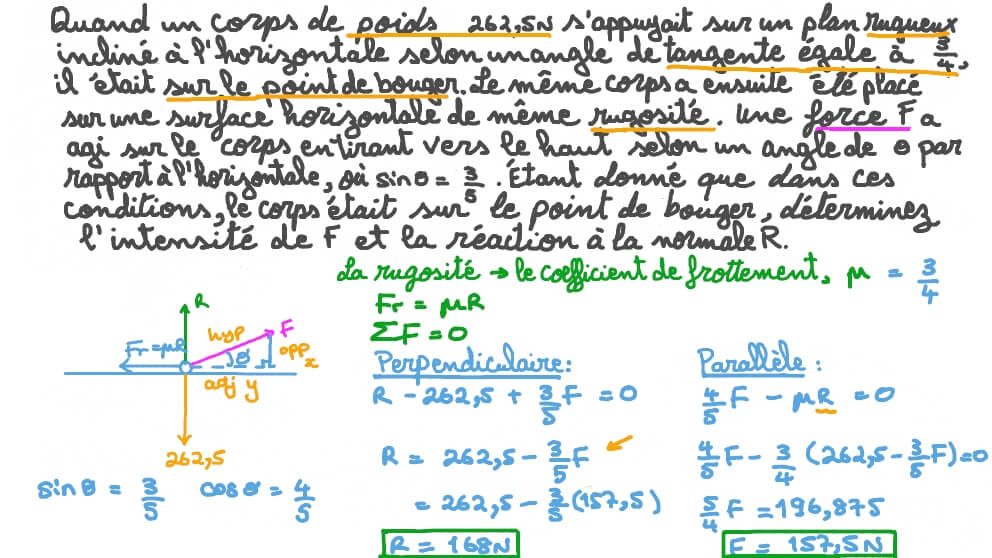 Quand un corps de poids 262,5N s'appuyait sur un plan rugueux
incliné à l'horizontale selon un angle de tangente égale à 3/4,
il était sur le point de bouger. Le même corps a ensuite été placé
sur une surface horizontale de même rugosité. Une force F a
agi sur le corps en tirant vers le haut selon un angle de θ par
rapport à l'horizontale, où sinθ = 3/5. Étant donné que dans ces
conditions, le corps était sur le point de bouger, déterminez
l'intensité de F et la réaction à la normale R.
La rugosité → le coefficient de frottement, μ = 3/4
Fr = μR
ΣF = 0
R
hyp
F
Fr = μR
θ
opp
x
adj y
262,5
sin θ = 3/5 cos θ = 4/5
Perpendiculaire:
R - 262,5 + 3/5 F = 0
R = 262,5 - 3/5 F
= 262,5 - 3/5 (157,5)
R = 168N
Parallèle :
4/5 F - μR = 0
4/5 F - 3/4 (262,5 - 3/5 F) = 0
5/4 F = 196,875
F = 157,5N